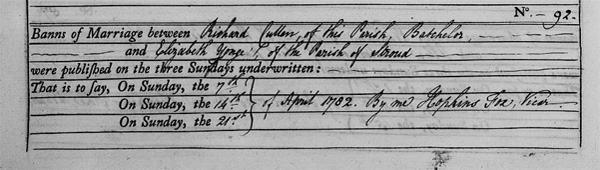 No. - 92.
Banns of Marriage between Richard Cullen, of this Parish, Batchelor,
and Elizabeth Yonge of the Parish of Stroud
were publiſhed on the three Sundays underwritten:
That is to ſay, On Sunday, the 7th
On Sunday, the 14th of April 1782. By me Hopkins Fox, Vicar
On Sunday, the 21st